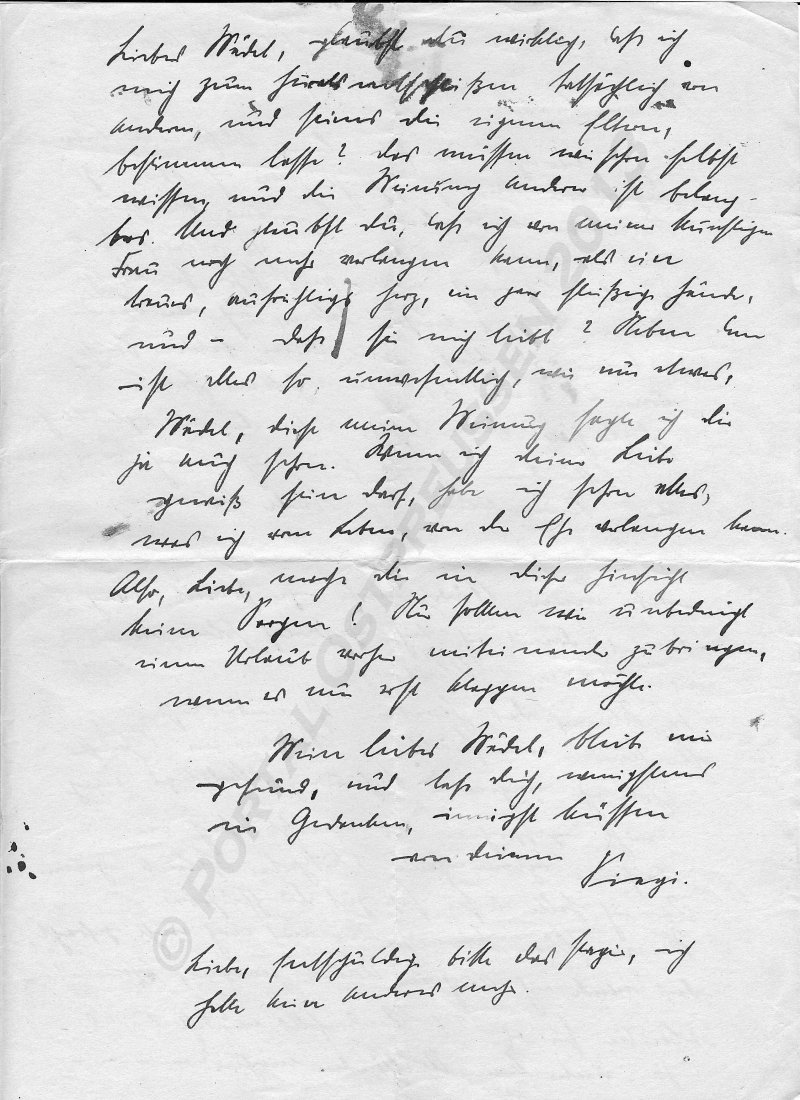 Liebes Mädel, glaubst du wirklich, daß ich
mich zum tatsächlich von
andern, und seiens die eignen Eltern,
bestimmen lasse? Das müssen wir schon selbst
wissen, und die Meinung anderer ist belang-
los. Und glaubst du, daß ich von meiner künftigen
Frau noch mehr verlangen kann, als ein
treues, aufrichtiges Herz, ein paar fleißige Hände,
und – daß sie mich liebt? Neben dem
ist alles so unwesentlich, wie nur etwas,
Mädel, diese meine Meinung sagte ich dir
ja auch schon. Wenn ich deiner Liebe
gewiß sein darf, habe ich schon alles,
was ich vom Leben, von der Ehe verlangen kann.
Also, Liebe, mache dir in dieser Hinsicht
keine Sorgen! Nur sollten wir unbedingt
einen Urlaub vorher miteinander zubringen,
wenn es nur erst klappen möchte.
Mein liebes Mädel, bleibe mir
gesund, und laß dich, wenigstens
in Gedanken, innigst küssen
von deinem
Siegi.
Liebe, entschuldige bitte das Papier, ich
hatte kein anderes mehr.
© PORTAL OSTPREUSSEN 2015